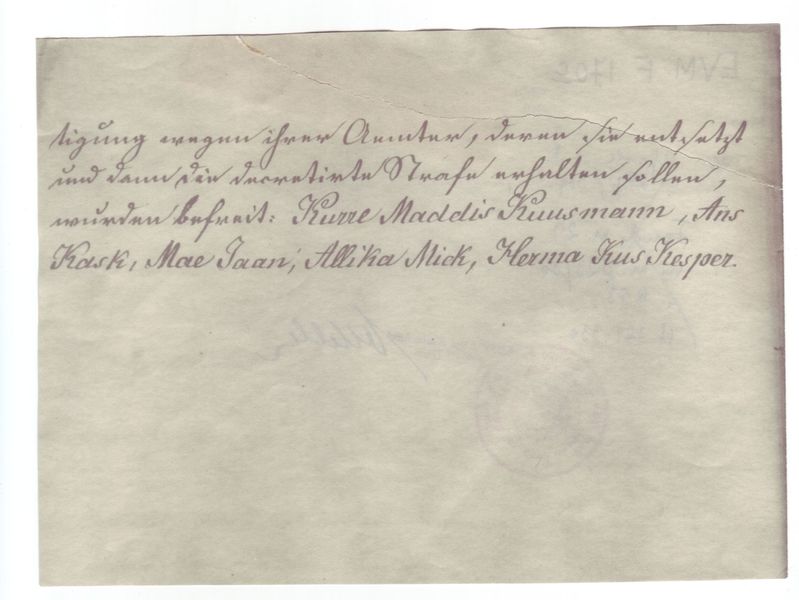 EVM F 1702
tigung wegen ihrer Aemter, deren sie entsetzt
und dann die decretirte Strafe erhalten sollen,
wurden befreit: Kurre Maddis Kuusmann, Ans
Kask, Mae Jaan, Allika Mick, Herma Kus Kesper.